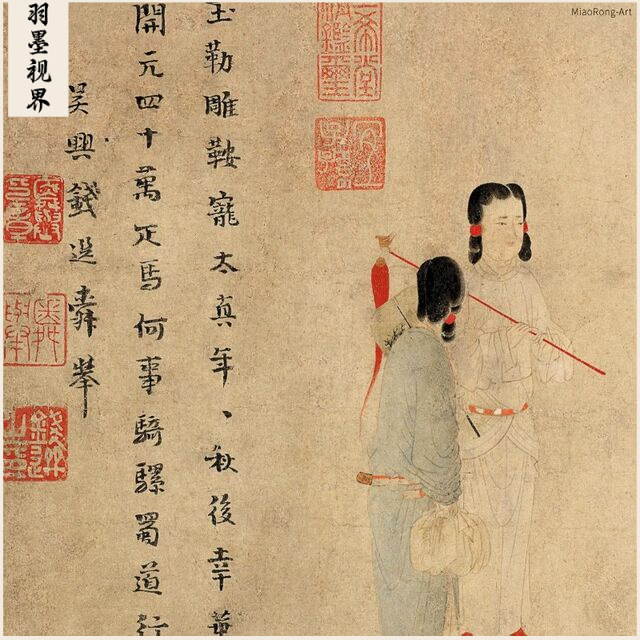 羽墨视界
MiaoRong-Art
玉勒雕鞍寵太真年、秋後幸華
開元四十萬疋馬何事騎騾蜀道行
吳興錢選舜舉